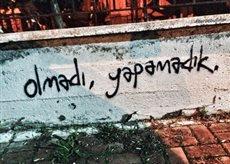 olmadı, yapamadık.